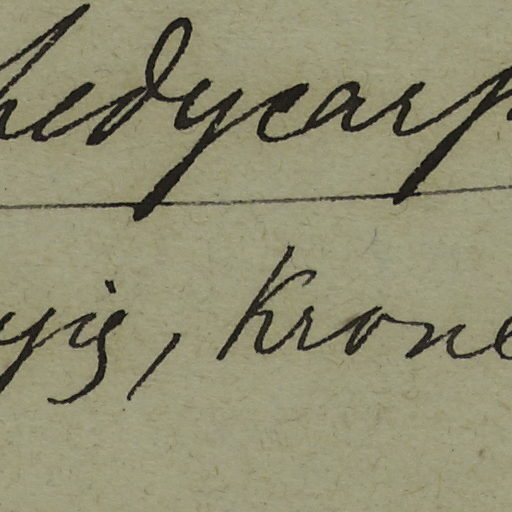 hedycarp
yig, Krone